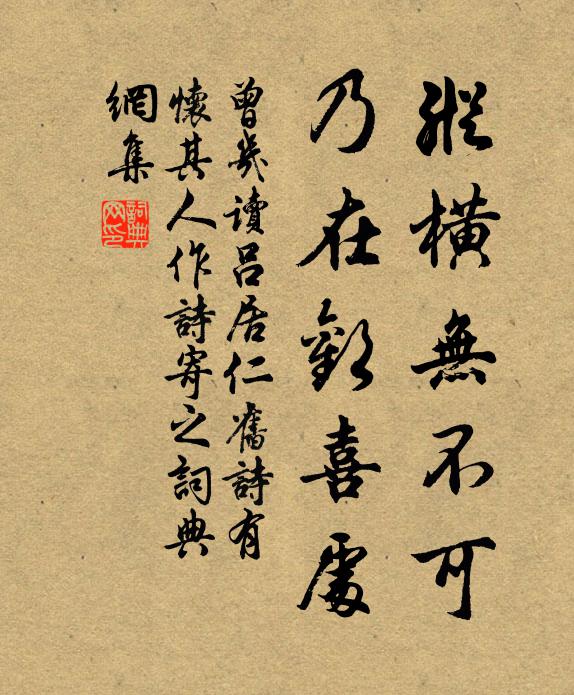 縱橫無不可
乃在歡喜處
曾幾讀呂居仁舊詩有
懷其人作詩寄之詞典
網集
詞典
网印